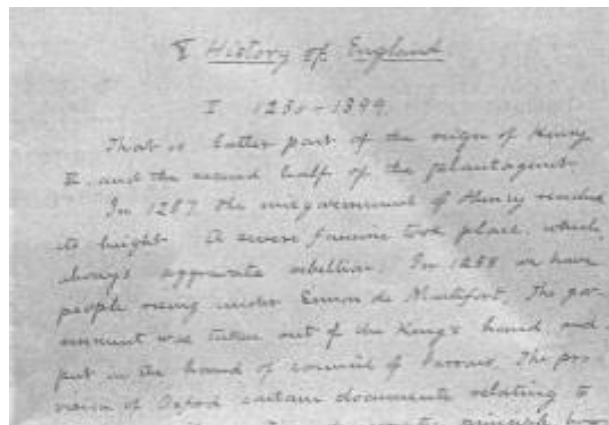 History of England
I 1250-1399.
That is latter part of the reign of Henry
and the second half of the plantagenet
In 1257 the misgovernment of Henry reaches
its height. A severe famine took place, which
always aggravate rebellion. In 1258 we have
people rising under Simon de Montfort. The gov-
ernment was taken out of the King's hand, and
put in the hand of council of Barrons. The pro
vision of Oxford contain documents relating to
principle